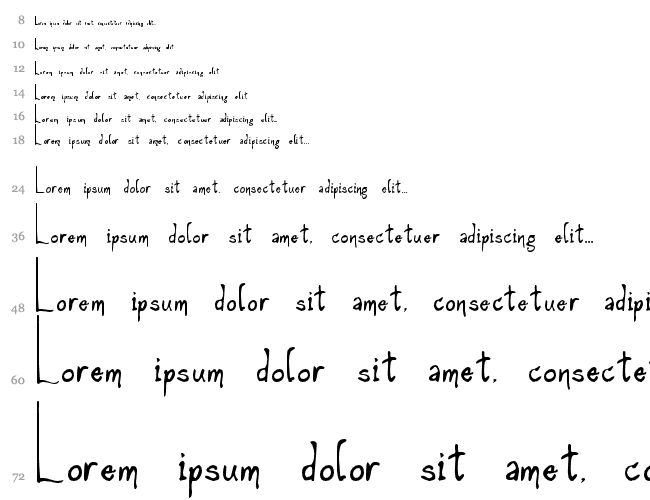 8 Lorem ipsum dolor sit amet, consectetuer adipiscing elit...
10 Lorem ipsum dolor sit amet, consectetuer adipiscing elit
12 Lorem ipsum dolor sit amet, consectetuer adipiscing elit
14 Lorem ipsum dolor sit amet, consectetuer adipiscing elit
16 Lorem ipsum dolor sit amet, consectetuer adipiscing elit...
18 Lorem ipsum dolor sit amet, consectetuer adipiscing elit...
24 Lorem ipsum dolor sit amet, consectetuer adipiscing elit...
36 Lorem ipsum dolor sit amet, consectetuer adipiscing elit...
48 Lorem ipsum dolor sit amet, consectetuer adipi
60 Lorem ipsum dolor sit amet, consecte
72 Lorem ipsum dolor sit amet, co